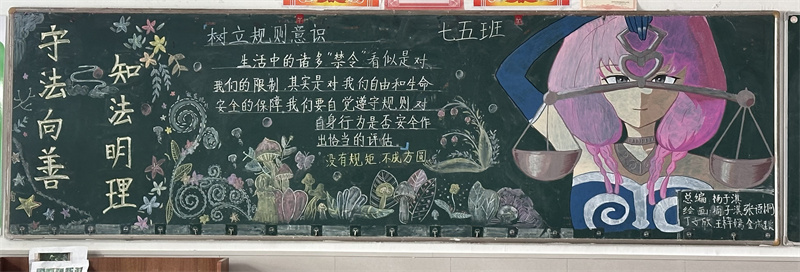 守法向善
知法明理
树立规则意识
七五班
生活中的诸多“禁令”看似是对
我们的限制，其实是对我们自由和生命
安全的保障，我们要自觉遵守规则，对
自身行为是否安全作
出恰当的评估。
没有规矩，不成方圆
总编 杨子淇
绘画 杨子淇 张语桐